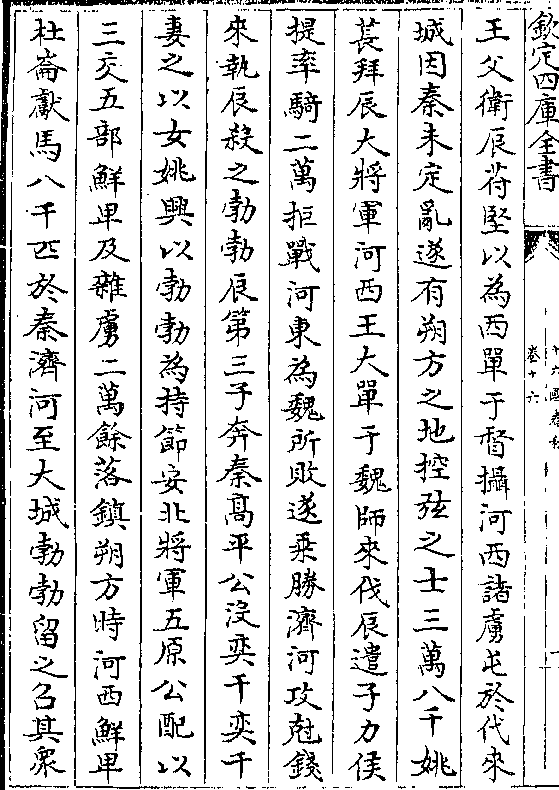 欽定四庫全書
十六國春秋
卷十六
王父衛辰苻堅以為西單于督攝河西諸虜屯於代來
城因秦未定亂遂有朔方之地控弦之士三萬八千姚
萇拜辰大將軍河西王大單于魏師來伐辰遣子力俟
提率騎二萬拒戰河東為魏所敗遂乗勝濟河攻尅錢
來執辰殺之勃勃辰第三子奔秦髙平公沒奕干奕干
妻之以女姚興以勃勃為持節安北將軍五原公配以
三交五部鮮卑及雜虜二萬餘落鎮朔方時河西鮮卑
杜崙獻馬八千匹於秦濟河至大城勃勃留之召其衆